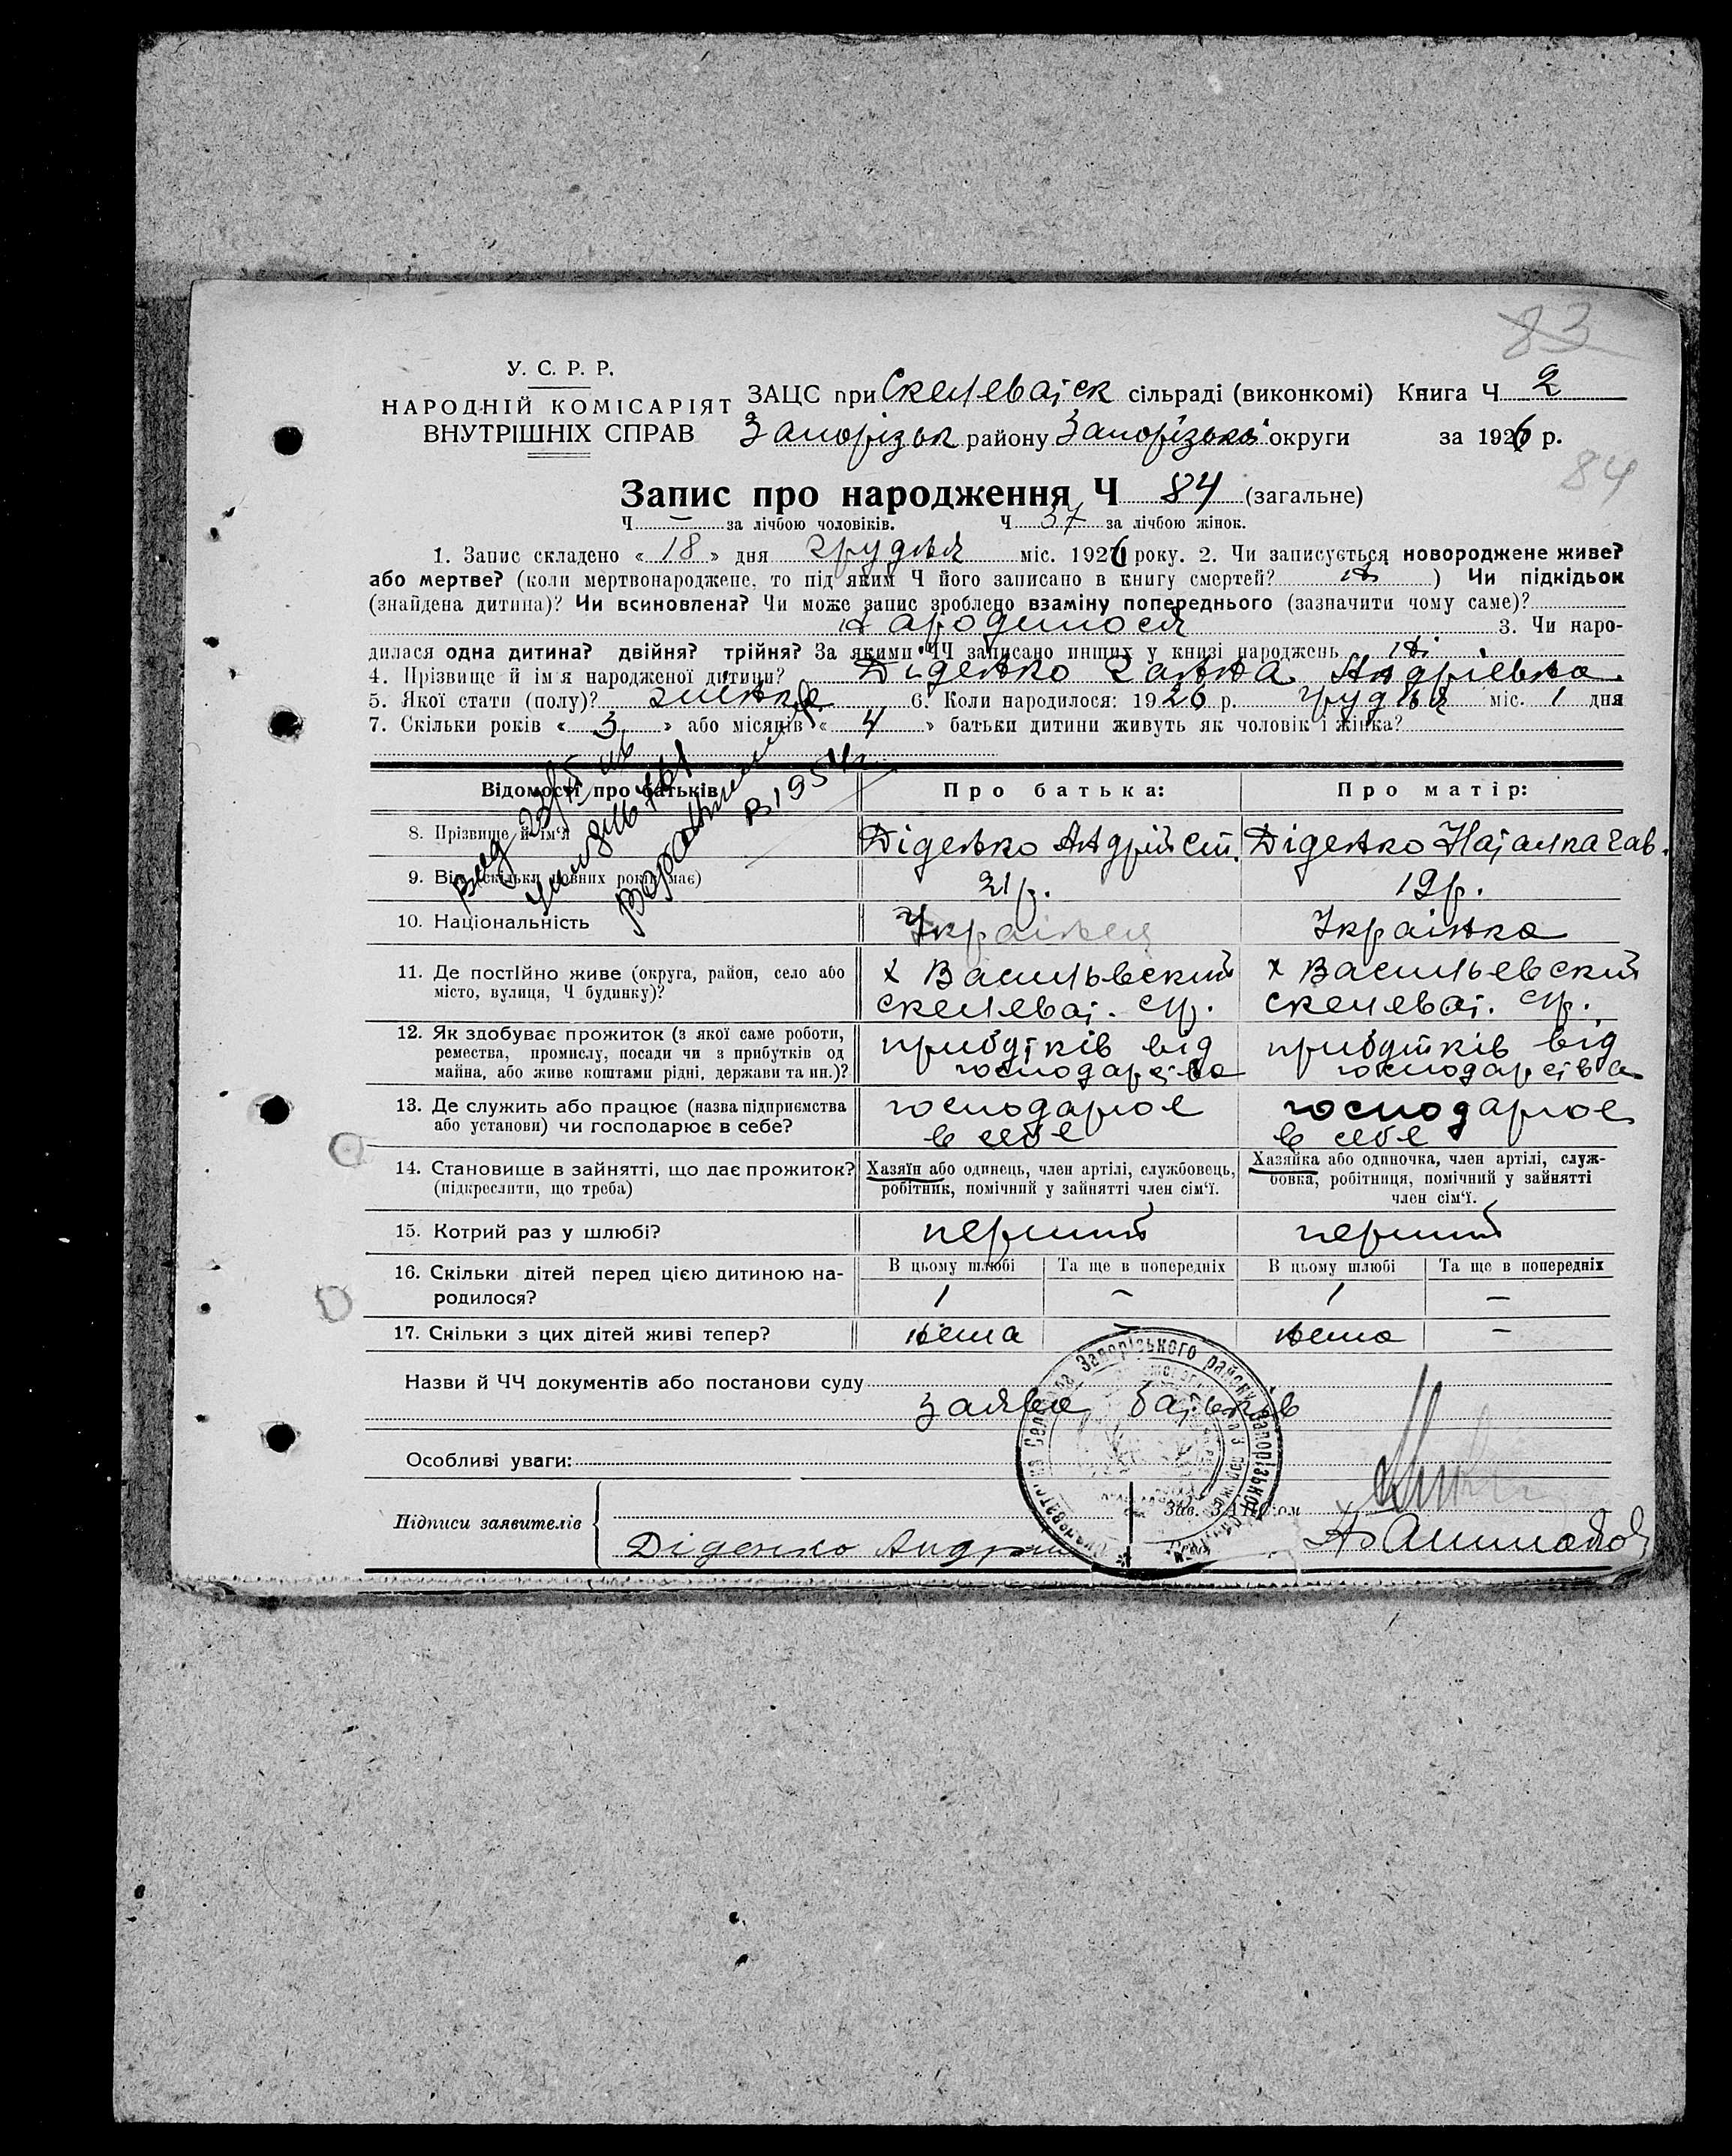 83
У. С. Р. Р.
НАРОДНІЙ КОМІСАРІЯТ
ВНУТРІШНІХ СПРАВ
ЗАЦС при Скелеватск сільраді (виконкомі) Книга Ч 2
Запорізьк району Запорізької округи за 1926 р.
84
Запис про народження Ч 84 (загальне)
Ч — за лічбою чоловіків. Ч 37 за лічбою жінок.
1. Запис складено « 18 » дня грудня міс. 1926 року. 2. Чи записується новороджене живе?
або мертве? (коли мертвонароджене, то під яким Ч його записано в книгу смертей? ) Чи підкідьок
(знайдена дитина)? Чи всиновлена? Чи може запис зроблено взаміну попереднього (зазначити чому саме)?
народилося 3. Чи наро-
дилася одна дитина? двійня? трійня? За якими ЧЧ записано инших у книзі народжень
4. Прізвище й ім'я народженої дитини? Діденко Ганна Андріевна.
5. Якої стати (полу)? жінка 6. Коли народилося: 1926 р. грудня міс. 1 дня
7. Скільки років « 3 » або місяців « 4 » батьки дитини живуть як чоловік і жінка?
в 1954 г
Відомості про батьків Про батька: Про матір:
8. Прізвище й ім'я Діденко Андрій Ст. Діденко Наталка Сав.
9. Вік (скільки повних років має) 21 р. 19 р.
10. Національність Українець Українка
11. Де постійно живе (округа, район, село або місто, вулиця, Ч будинку)? х Васильевский Скелеват. ср. х Васильевский Скелеват. ср.
12. Як здобуває прожиток (з якої саме роботи, ремества, промислу, посади чи з прибутків од майна, або живе коштами рідні, держави та ин.)? прибутків від господарства прибутків від господарства
13. Де служить або працює (назва підприємства або установи) чи господарює в себе? господарює в себе господарює в себе
14. Становище в зайнятті, що дає прожиток? (підкреслити, що треба) Хазяїн або одинець, член артілі, службовець, робітник, помічний у зайнятті член сім'ї. Хазяйка або одиночка, член артілі, служ-бовка, робітниця, помічний у зайнятті член сім'ї.
15. Котрий раз у шлюбі? перший перший
16. Скільки дітей перед цією дитиною на-родилося? В цьому шлюбі 1 Та ще в попередніх — В цьому шлюбі 1 Та ще в попередніх —
17. Скільки з цих дітей живі тепер? нема — нема —
Назви й ЧЧ документів або постанови суду
заява батьків
Особливі уваги:
Підписи заявителів Зав. ЗАЦС'ом
Діденко Андрій